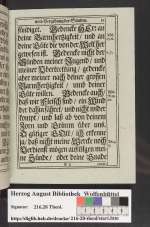 und Vergebung der Sünden.
kündiget. Gedencke HErr an
deine Barmhertzigkeit/ und an
deine Güte die von der Welt her
gewesen ist. Gedencke nicht der
Sünden meiner Jugend/ und
meiner Ubertrettung/ gedencke
aber meiner nach deiner grossen
Barmhertzigkeit/ und deiner
Güte willen. Gedencke auch/
daß wir Fleisch sind/ ein Wind
der dahin fähret/ und nicht wider
kompt/ und laß ab von deinem
Zorn und Grimm über uns.
O gütiger Gott/ ich erkenne
ja/ daß nicht meine Wercke noch
Verdienst mögen außtilgen mei-
ne Sünde/ aber deine Gnade
Herzog August Bibliothek Wolfenbüttel
Signatur: 216.29 Theol.
http://diglib.hab.de/drucke/216-29-theol/start.htm